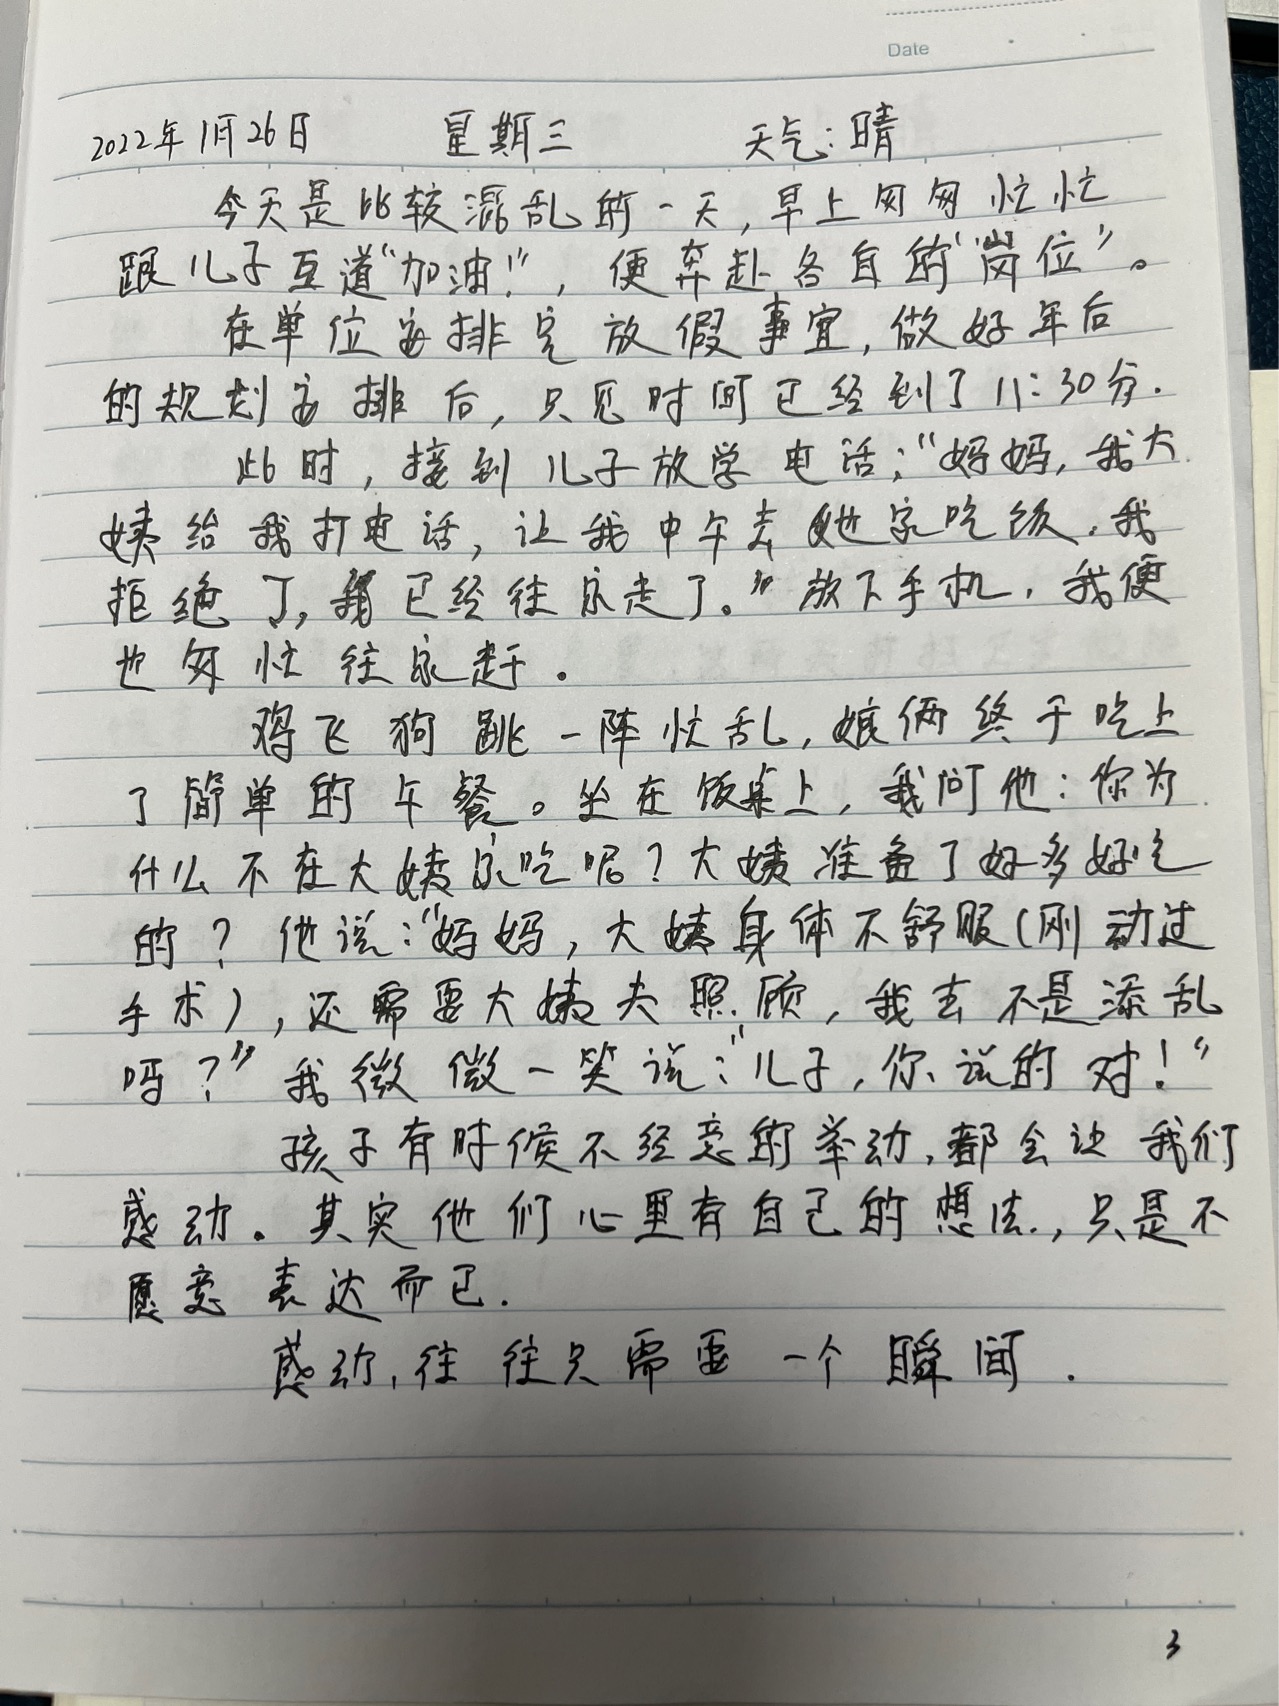 Date
2022年1月26日 星期三 天气:晴
今天是比较混乱的一天,早上匆匆忙忙
跟儿子互道"加油!",便奔赴各自的"岗位"。
在单位安排完放假事宜,做好年后
的规划安排后,只见时间已经到了11:30分.
此时,接到儿子放学电话:"妈妈,我大
姨给我打电话,让我中午去她家吃饭,我
拒绝了,我已经往家走了。"放下手机,我便
也匆忙往家赶。
鸡飞狗跳一阵忙乱,娘俩终于吃上
了简单的午餐。坐在饭桌上,我问他:你为
什么不在大姨家吃呢?大姨准备了好多好吃
的?他说:"妈妈,大姨身体不舒服(刚动过
手术),还需要大姨夫照顾,我去不是添乱
吗?"我微微一笑说:"儿子,你说的对!"
孩子有时候不经意的举动,都会让我们
感动。其实他们心里有自己的想法,只是不
愿意表达而已.
感动,往往只需要一个瞬间.
3